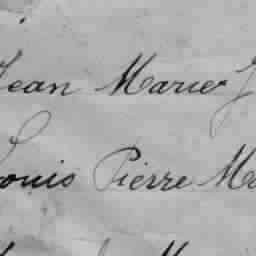 Jean Marie J
Louis Pierre Ma